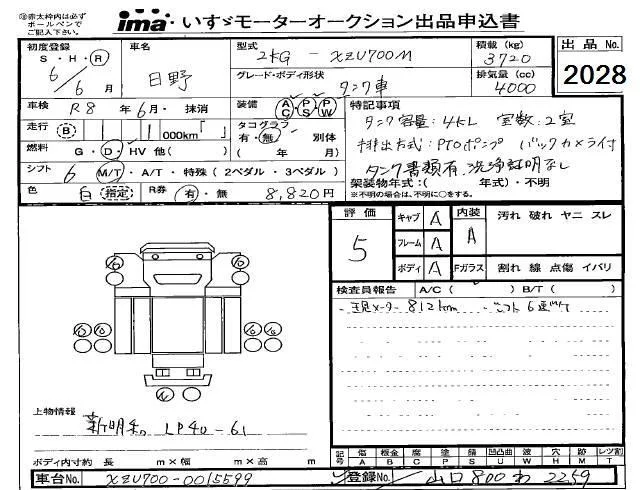 ◎赤太枠内は必ず
ボールペンで
ご記入下さい。
ima いすゞモーターオークション出品申込書
初度登録
S・H・R
6/6月
車名
日野
型式
2KG - XZU700M
積載(kg)
3720
出品No.
2028
グレード・ボディ形状
タンク車
排気量(cc)
4000
車検 R8 年 6月・抹消
装備 AC・PS・PW
特記事項
走行 (B) 000km「 」
タコグラフ
有・無 別体
( 年 月)
タンク容量:4KL 室数:2室
燃料 G・D・HV 他( )
排出方式:PTOポンプ バックカメラ付
シフト 6 M/T・A/T・特殊(2ペダル・3ペダル)
タンク書類有 洗浄証明なし
架装物年式:( 年式)・不明
※不明の場合は、不明に○をする。
色 白 指定 R券 有・無 8,820円
評価
5
キャブ A
フレーム A
ボディ A
内装
A
汚れ 破れ ヤニ スレ
Fガラス 割れ 線 点傷 イバリ
検査員報告 A/C( ) B/T( )
現メーター 812km シフト6速MT
上物情報
新明和 LP40-61
ボディ内寸約 長 m×幅 m×高 m
記号
傷 A
板金 B
腐 C
塗 P
錆 S
凹凸曲 U
波 W
穴 H
跡 M
レツ割 T
車台No. XZU700-0015599
登録No. 山口 800 わ 2259